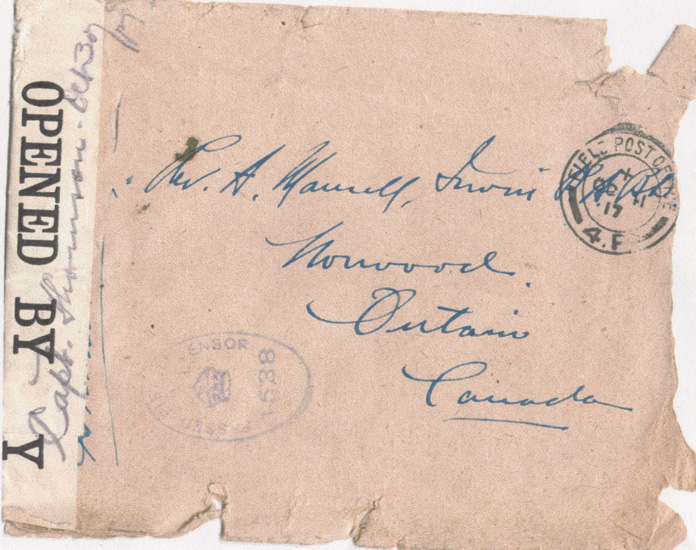 OPENED BY
Capt. Thomson - Oct 30/17
Rev. A. Mansell Irwin B.A. B.D.
Norwood
Ontario
Canada
FIELD POST OFFICE
OC 11
17
4.F
CENSOR
1538
PASSED